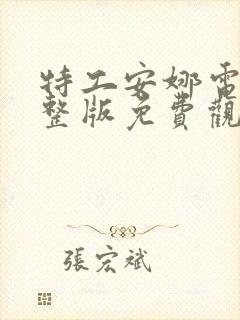 特工安娜電
整版免費觀
張宏斌